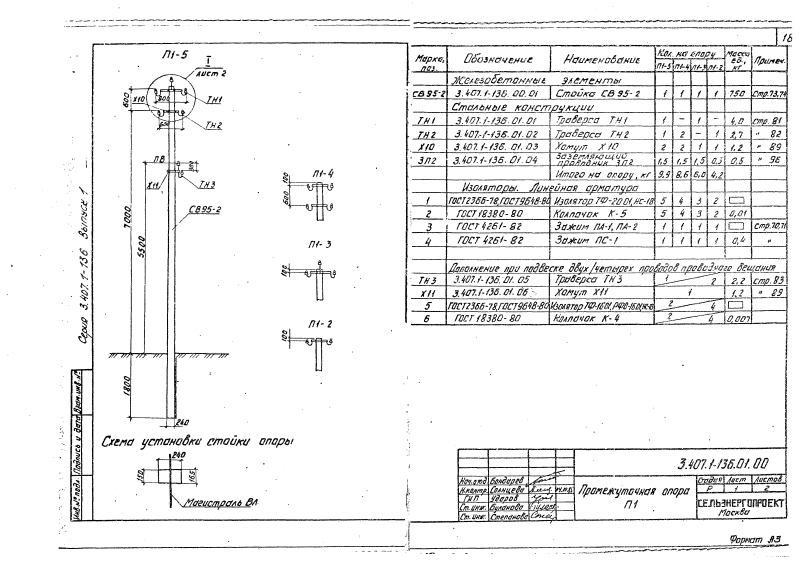 18
П1-5
I
лист 2
600
Х10
800
ТН1
ТН2
ПВ
300
Х11
ТН3
СВ95-2
7000
5500
1800
240
П1-4
100
600
П1-3
100
П1-2
100
Схема установки стойки опоры
240
165
Магистраль ВЛ
Серия 3.407.1-136 Выпуск 1
Инв.№ подл. Подпись и дата Взам.инв.№
Марка, поз. Обозначение Наименование Кол. на опору Масса ед., кг Примеч.
П1-5 П1-4 П1-3 П1-2
Железобетонные элементы
СВ95-2 3.407.1-136.00.01 Стойка СВ 95-2 1 1 1 1 750 Стр.73,74
Стальные конструкции
ТН1 3.407.1-136.01.01 Траверса ТН1 1 - 1 - 4,0 стр. 81
ТН2 3.407.1-136.01.02 Траверса ТН2 1 2 - 1 2,7 " 82
Х10 3.407.1-136.01.03 Хомут Х10 2 2 1 1 1,2 " 89
ЗП2 3.407.1-136.01.04 Заземляющий проводник ЗП2 1,5 1,5 1,5 0,3 0,5 " 96
Итого на опору, кг 9,9 8,6 6,0 4,2
Изоляторы. Линейная арматура
1 ГОСТ2366-78,ГОСТ9648-80 Изолятор ТФ-20 01, НС-18 5 4 3 2
2 ГОСТ 18380-80 Колпачок К-5 5 4 3 2 0,01
3 ГОСТ 4261-82 Зажим ПА-1, ПА-2 1 1 1 1 Стр.70,71
4 ГОСТ 4261-82 Зажим ПС-1 1 1 1 1 0,4 "
Дополнение при подвеске двух/четырех проводов проводного вещания
ТН3 3.407.1-136.01.05 Траверса ТН3 1/2 2,2 стр. 83
Х11 3.407.1-136.01.06 Хомут Х11 1 1,2 " 89
5 ГОСТ2366-78,ГОСТ9648-80 Изолятор 2/4
6 ГОСТ 18380-80 Колпачок К-4 2/4 0,007
3.407.1-136.01.00
Нач.отд. Бондарев
Н.контр. Солнцева
ГИП Ударов
Ст. инж. Буланова
Ст. инж. Степанова
Промежуточная опора П1
Стадия Лист Листов
Р 1 2
СЕЛЬЭНЕРГОПРОЕКТ
Москва
Формат А3